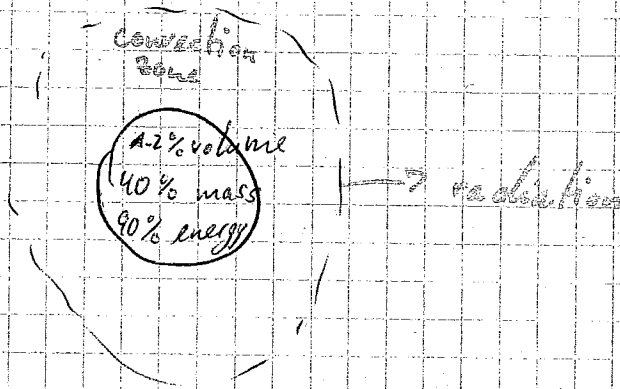 convection
zone
1-2% volume
40% mass
90% energy
radiation